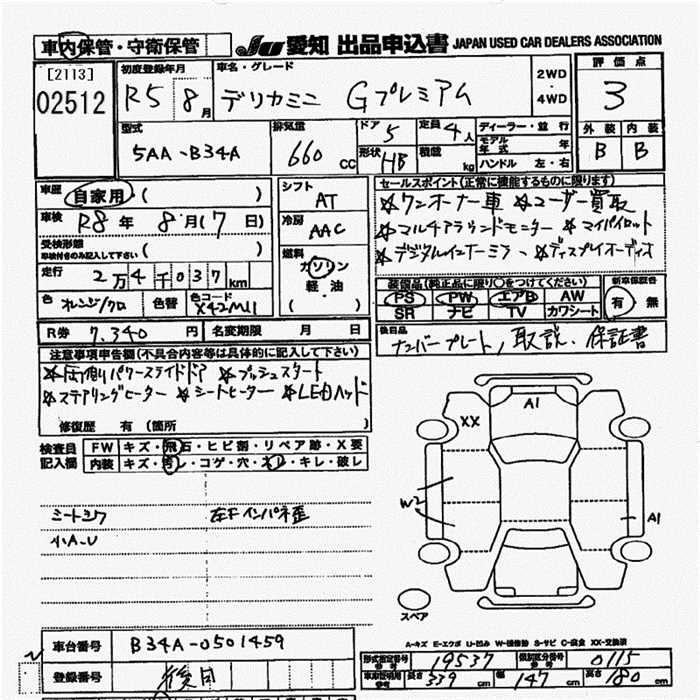 車内保管・守衛保管
JU 愛知 出品申込書 JAPAN USED CAR DEALERS ASSOCIATION
[2113]
02512
初度登録年月
R5 8月
車名・グレード
デリカミニ Gプレミアム
2WD
・
4WD
評価点
3
外装 内装
B B
型式
5AA-B34A
排気量
660 CC
ドア 5
形状 HB
定員 4人
積載 kg
ディーラー・並行
モデル年式 年
ハンドル 左・右
車歴 自家用 ( )
車検 R8年 8月(7日)
受検形態
車検付きのみ記入して下さい ( )
走行 2万4千037km
色 オレンジ/クロ 色替 色コード X42M11
シフト AT
冷房 AAC
燃料
ガソリン
軽油
( )
セールスポイント(正常に機能するものに限ります)
☆ワンオーナー車 ☆ユーザー買取
☆マルチアラウンドモニター ☆マイパイロット
☆デジタルインナーミラー ☆ディスプレイオーディオ
装備品(純正品に限り○をつけてください)
PS PW エアB AW
SR ナビ TV カワシート
新車保証書
有 無
R券 7,340円 名変期限 月 日
後日品
ナンバープレート, 取説、保証書
注意事項申告欄(不具合内容等は具体的に記入して下さい)
☆両側パワースライドドア ☆プッシュスタート
☆ステアリングヒーター ☆シートヒーター ☆LEDヘッド
修復歴 有(箇所
検査員記入欄
FW キズ・飛石・ヒビ割・リペア跡・X要
内装 キズ・汚レ・コゲ・穴・スレ・キレ・破レ
シートヨゴ 左Fインパネ歪
小A-U
A1
XX
W2
A1
スペア
A-キズ E-エクボ U-凹み W-補修跡 S-サビ C-腐食 XX-交換済
車台番号 B34A-0501459
登録番号 後日
形式指定番号 参考 19537 類別区分番号 参考 0115
車車証明用 参考 長さ 339 幅 147 cm 高さ 180 cm